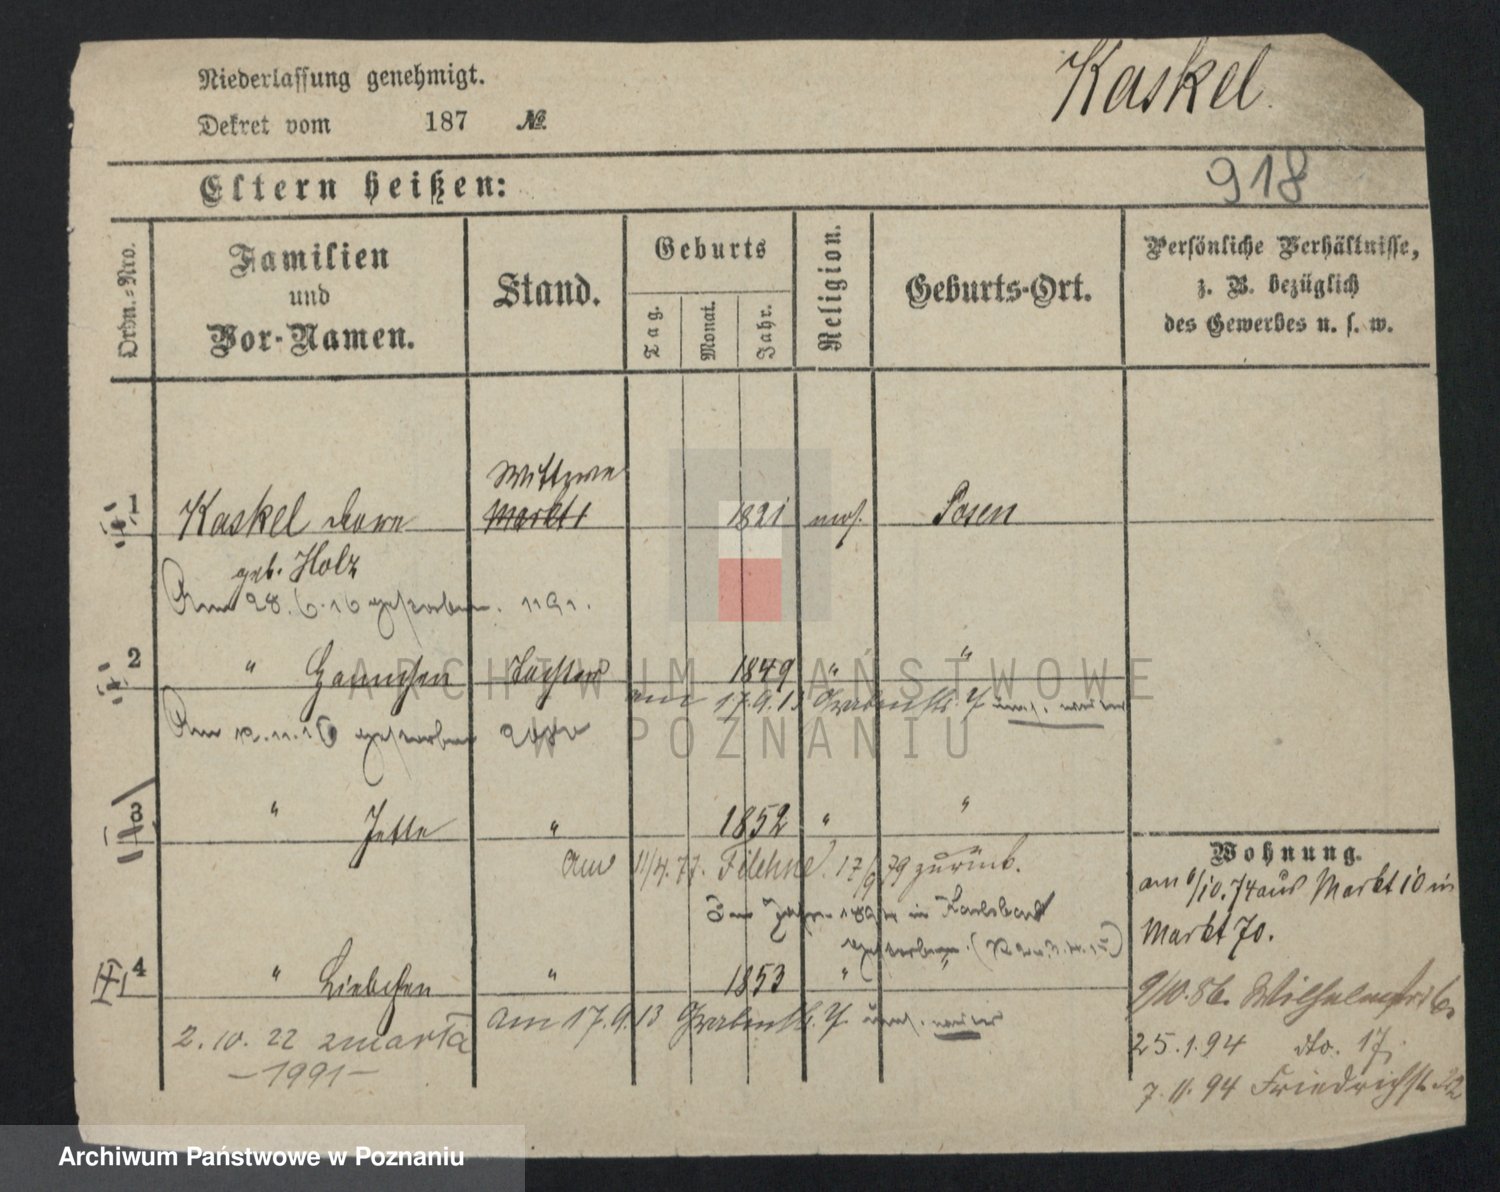 Niederlassung genehmigt.
Kaskel.
Dekret vom 187 No.
918
Eltern heißen:
Ordn.-Nro.
Familien
und
Vor-Namen.
Stand.
Geburts
Tag.
Monat.
Jahr.
Religion.
Geburts-Ort.
Persönliche Verhältnisse,
z. B. bezüglich
des Gewerbes u. s. w.
Wittwe
1 Kaskel 1821 mos. Posen
geb. Holz
Am 28.6.16 gestorben. 1191.
2 " Hannchen Tochter 1849 " "
am 17.9.13 Grabenstr. 7
Am gestorben
3 " Jette " 1852 " "
am 11/4.77. Filehne. 17/9 79 zurück.
Im Jahre in Karlsbad
gestorben.
4 " Liebchen " 1853 " "
am 17.9.13 Grabenstr. 7.
2.10.22 zmarła
-1991-
Wohnung.
am 6/10.74 aus Markt 10 in
Markt 70.
9/10.86. Wilhelmstr
25.1.94 dto. 17.
7.11.94 Friedrichstr. 22
ARCHIWUM PAŃSTWOWE
W POZNANIU
Archiwum Państwowe w Poznaniu